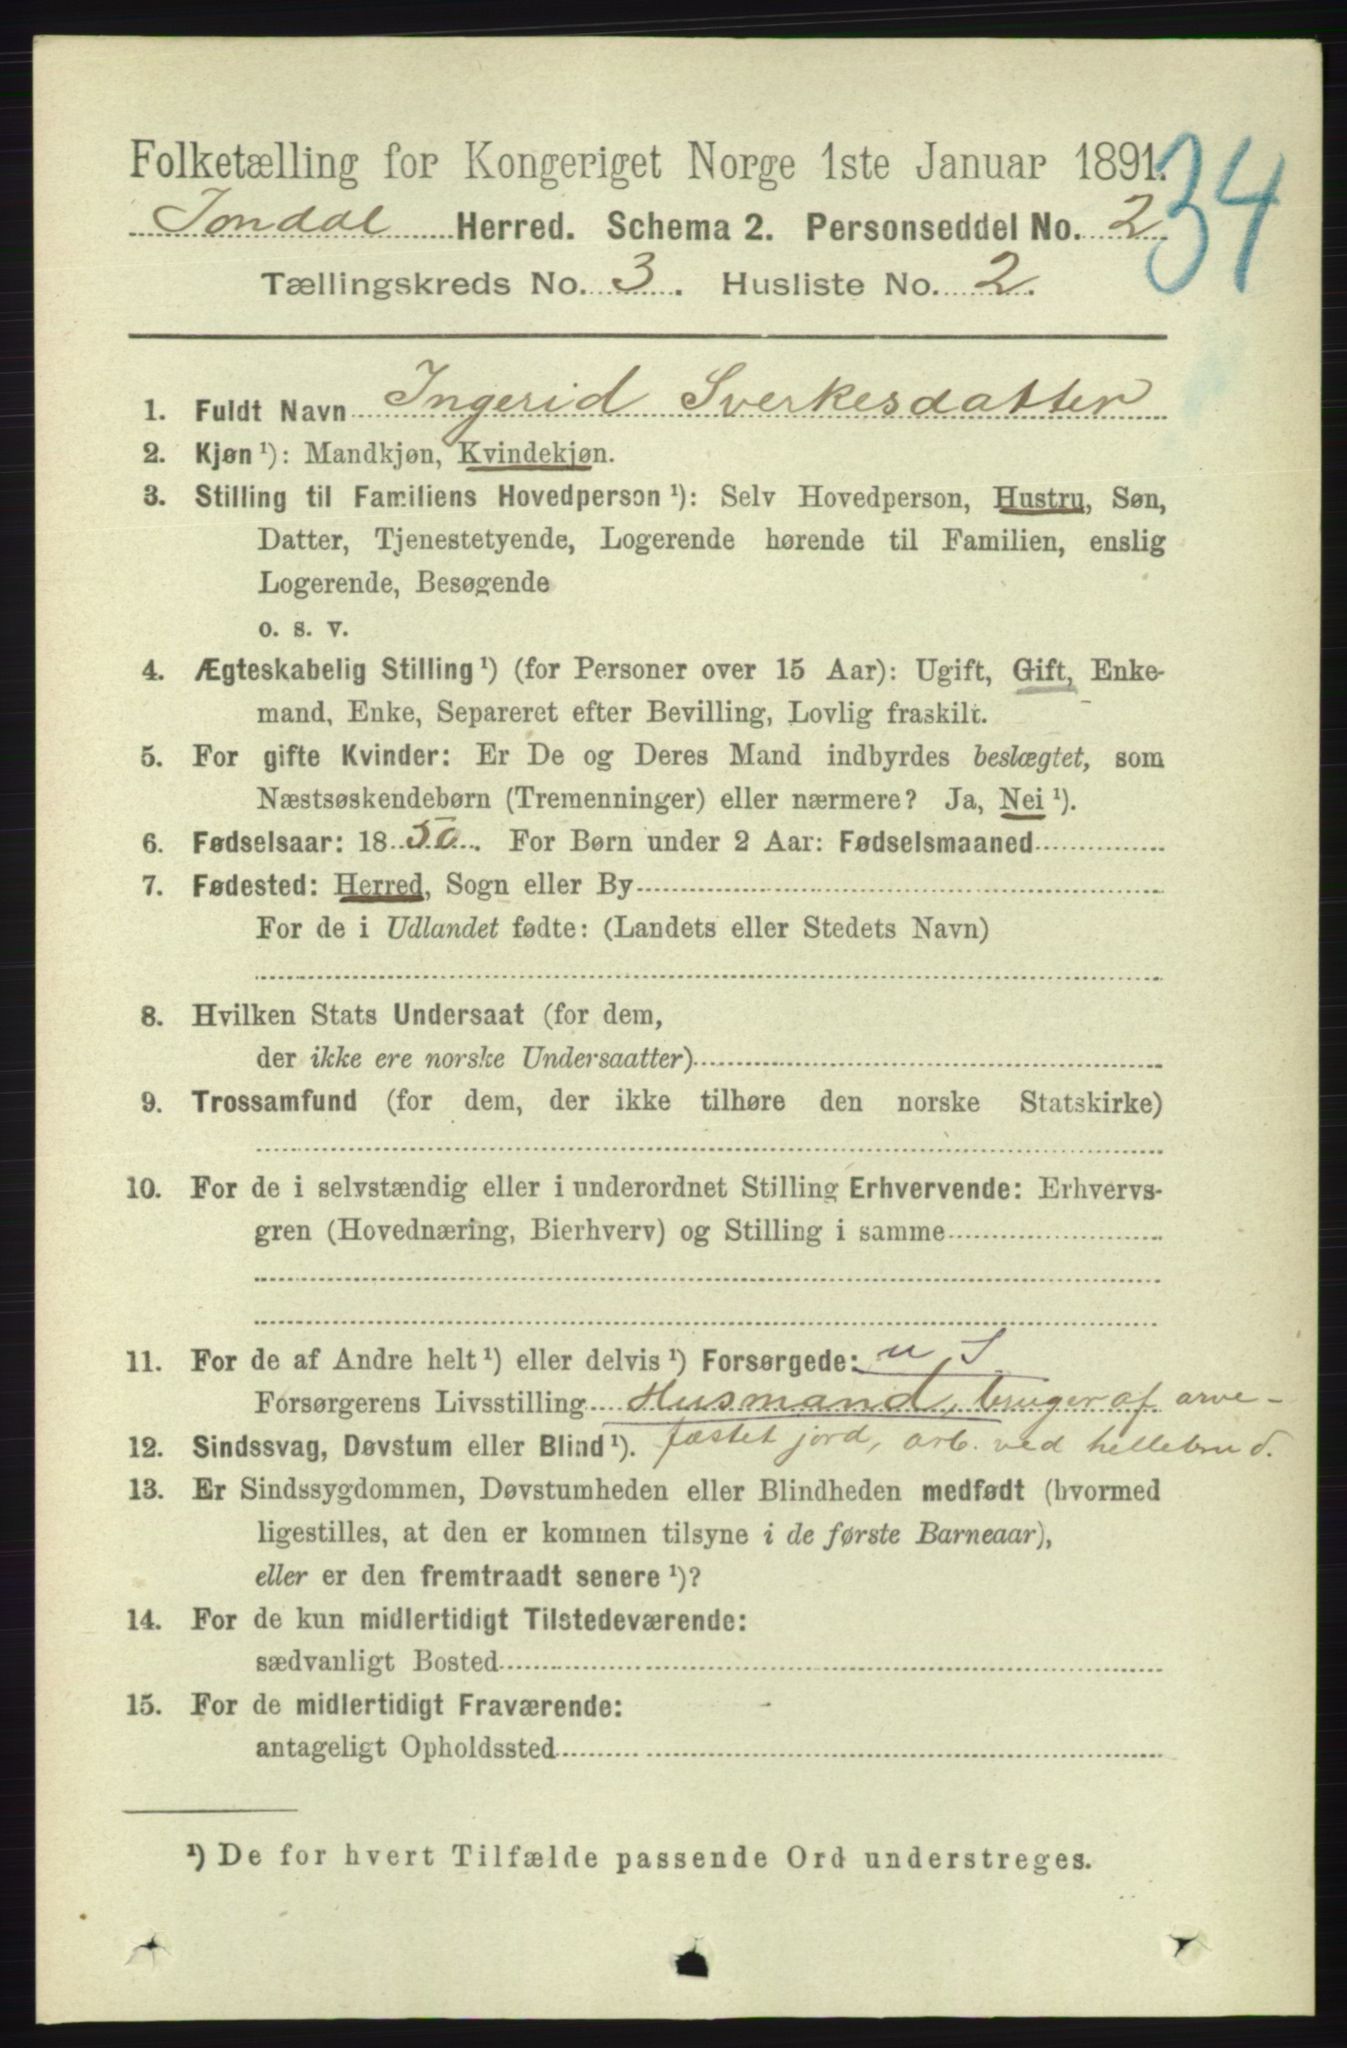 Folketælling for Kongeriget Norge 1ste Januar 1891.
34
Jondal Herred. Schema 2. Personseddel No. 2
Tællingskreds No. 3. Husliste No. 2.
1. Fuldt Navn Ingerid Sverkesdatter
2. Kjøn ¹): Mandkjøn, Kvindekjøn.
3. Stilling til Familiens Hovedperson ¹): Selv Hovedperson, Hustru, Søn,
Datter, Tjenestetyende, Logerende hørende til Familien, enslig
Logerende, Besøgende
o. s. v.
4. Ægteskabelig Stilling ¹) (for Personer over 15 Aar): Ugift, Gift, Enke-
mand, Enke, Separeret efter Bevilling, Lovlig fraskilt.
5. For gifte Kvinder: Er De og Deres Mand indbyrdes beslægtet, som
Næstsøskendebørn (Tremenninger) eller nærmere? Ja, Nei ¹).
6. Fødselsaar: 1850. For Børn under 2 Aar: Fødselsmaaned
7. Fødested: Herred, Sogn eller By
For de i Udlandet fødte: (Landets eller Stedets Navn)
8. Hvilken Stats Undersaat (for dem,
der ikke ere norske Undersaatter)
9. Trossamfund (for dem, der ikke tilhøre den norske Statskirke)
10. For de i selvstændig eller i underordnet Stilling Erhvervende: Erhvervs-
gren (Hovednæring, Bierhverv) og Stilling i samme
11. For de af Andre helt ¹) eller delvis ¹) Forsørgede:
Forsørgerens Livsstilling Husmand, bruger af arve-
12. Sindssvag, Døvstum eller Blind ¹). fæstet jord, arb. ved hellebrud.
13. Er Sindssygdommen, Døvstumheden eller Blindheden medfødt (hvormed
ligestilles, at den er kommen tilsyne i de første Barneaar),
eller er den fremtraadt senere ¹)?
14. For de kun midlertidigt Tilstedeværende:
sædvanligt Bosted
15. For de midlertidigt Fraværende:
antageligt Opholdssted
¹) De for hvert Tilfælde passende Ord understreges.